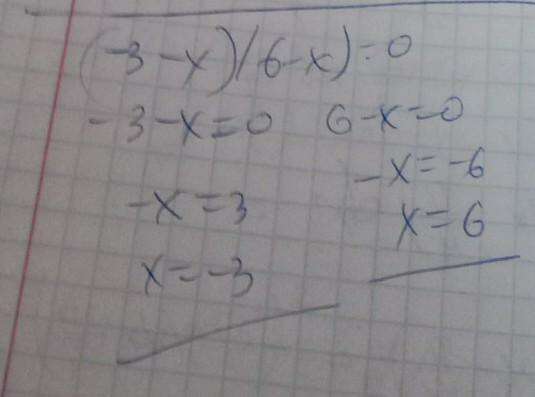 (-3-x)(6-x)=0
-3-x=0 6-x=0
-x=-6
-x=3
x=6
x=-3